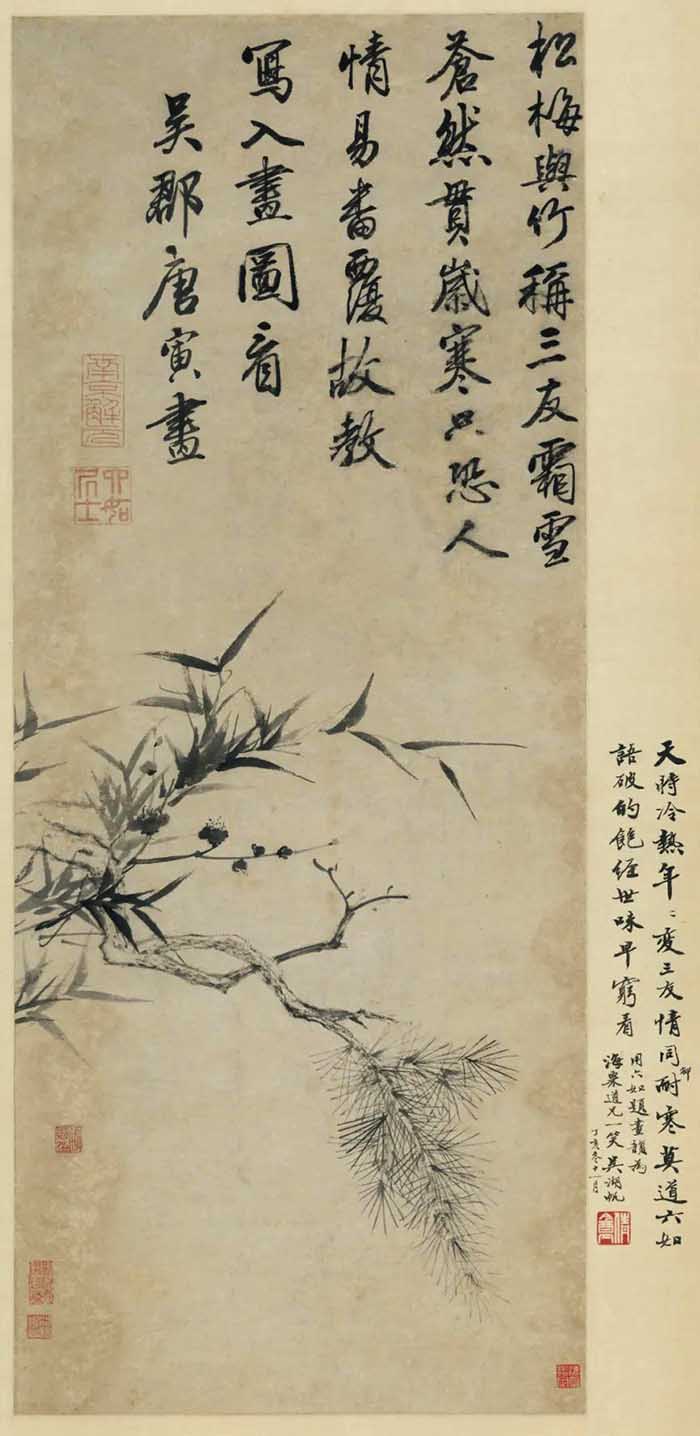 松梅與竹稱三友霜雪
蒼然貫歲寒只恐人
情易畨覆故教
寫入畫圖看
吳郡唐寅畫
南京解元
六如居士
天時冷熱年〻變三友情同卻耐寒莫道六如
語破的飽經世味早窮看
用六如題畫韻為
海粟道兄一笑吳湖帆
丁亥冬十一月